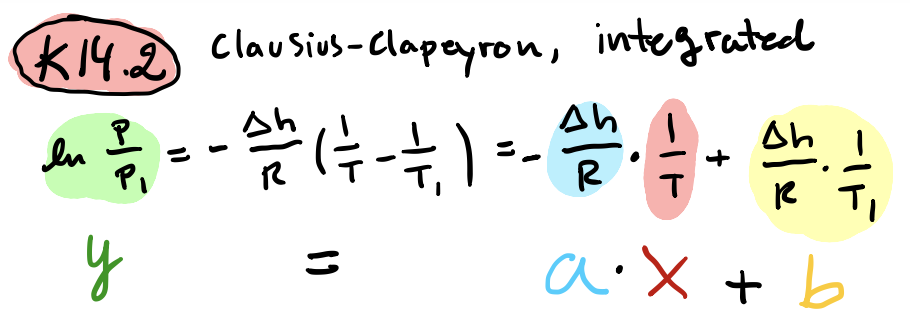 K14.2 Clausius-Clapeyron, integrated
ln P/P₁ = - Δh/R (1/T - 1/T₁) = - Δh/R · 1/T + Δh/R · 1/T₁
y = a · x + b